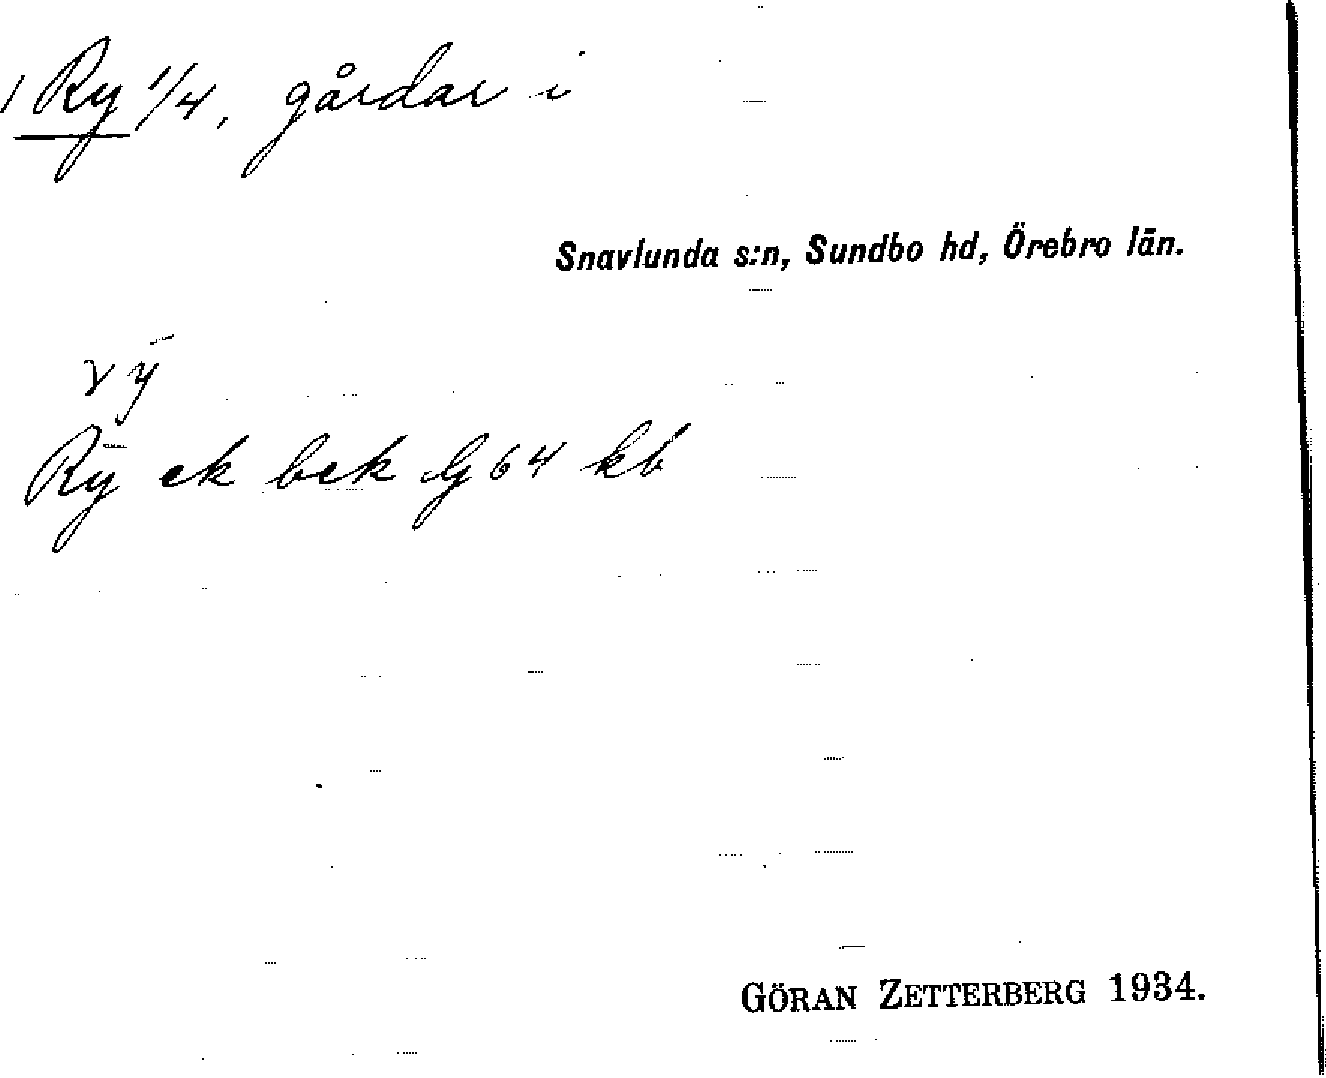 Ry 1/4, gårdar i
Snavlunda s:n, Sundbo hd, Örebro län.
rȳ
Rÿ ek bek lG 64 kb
GÖRAN ZETTERBERG 1934.